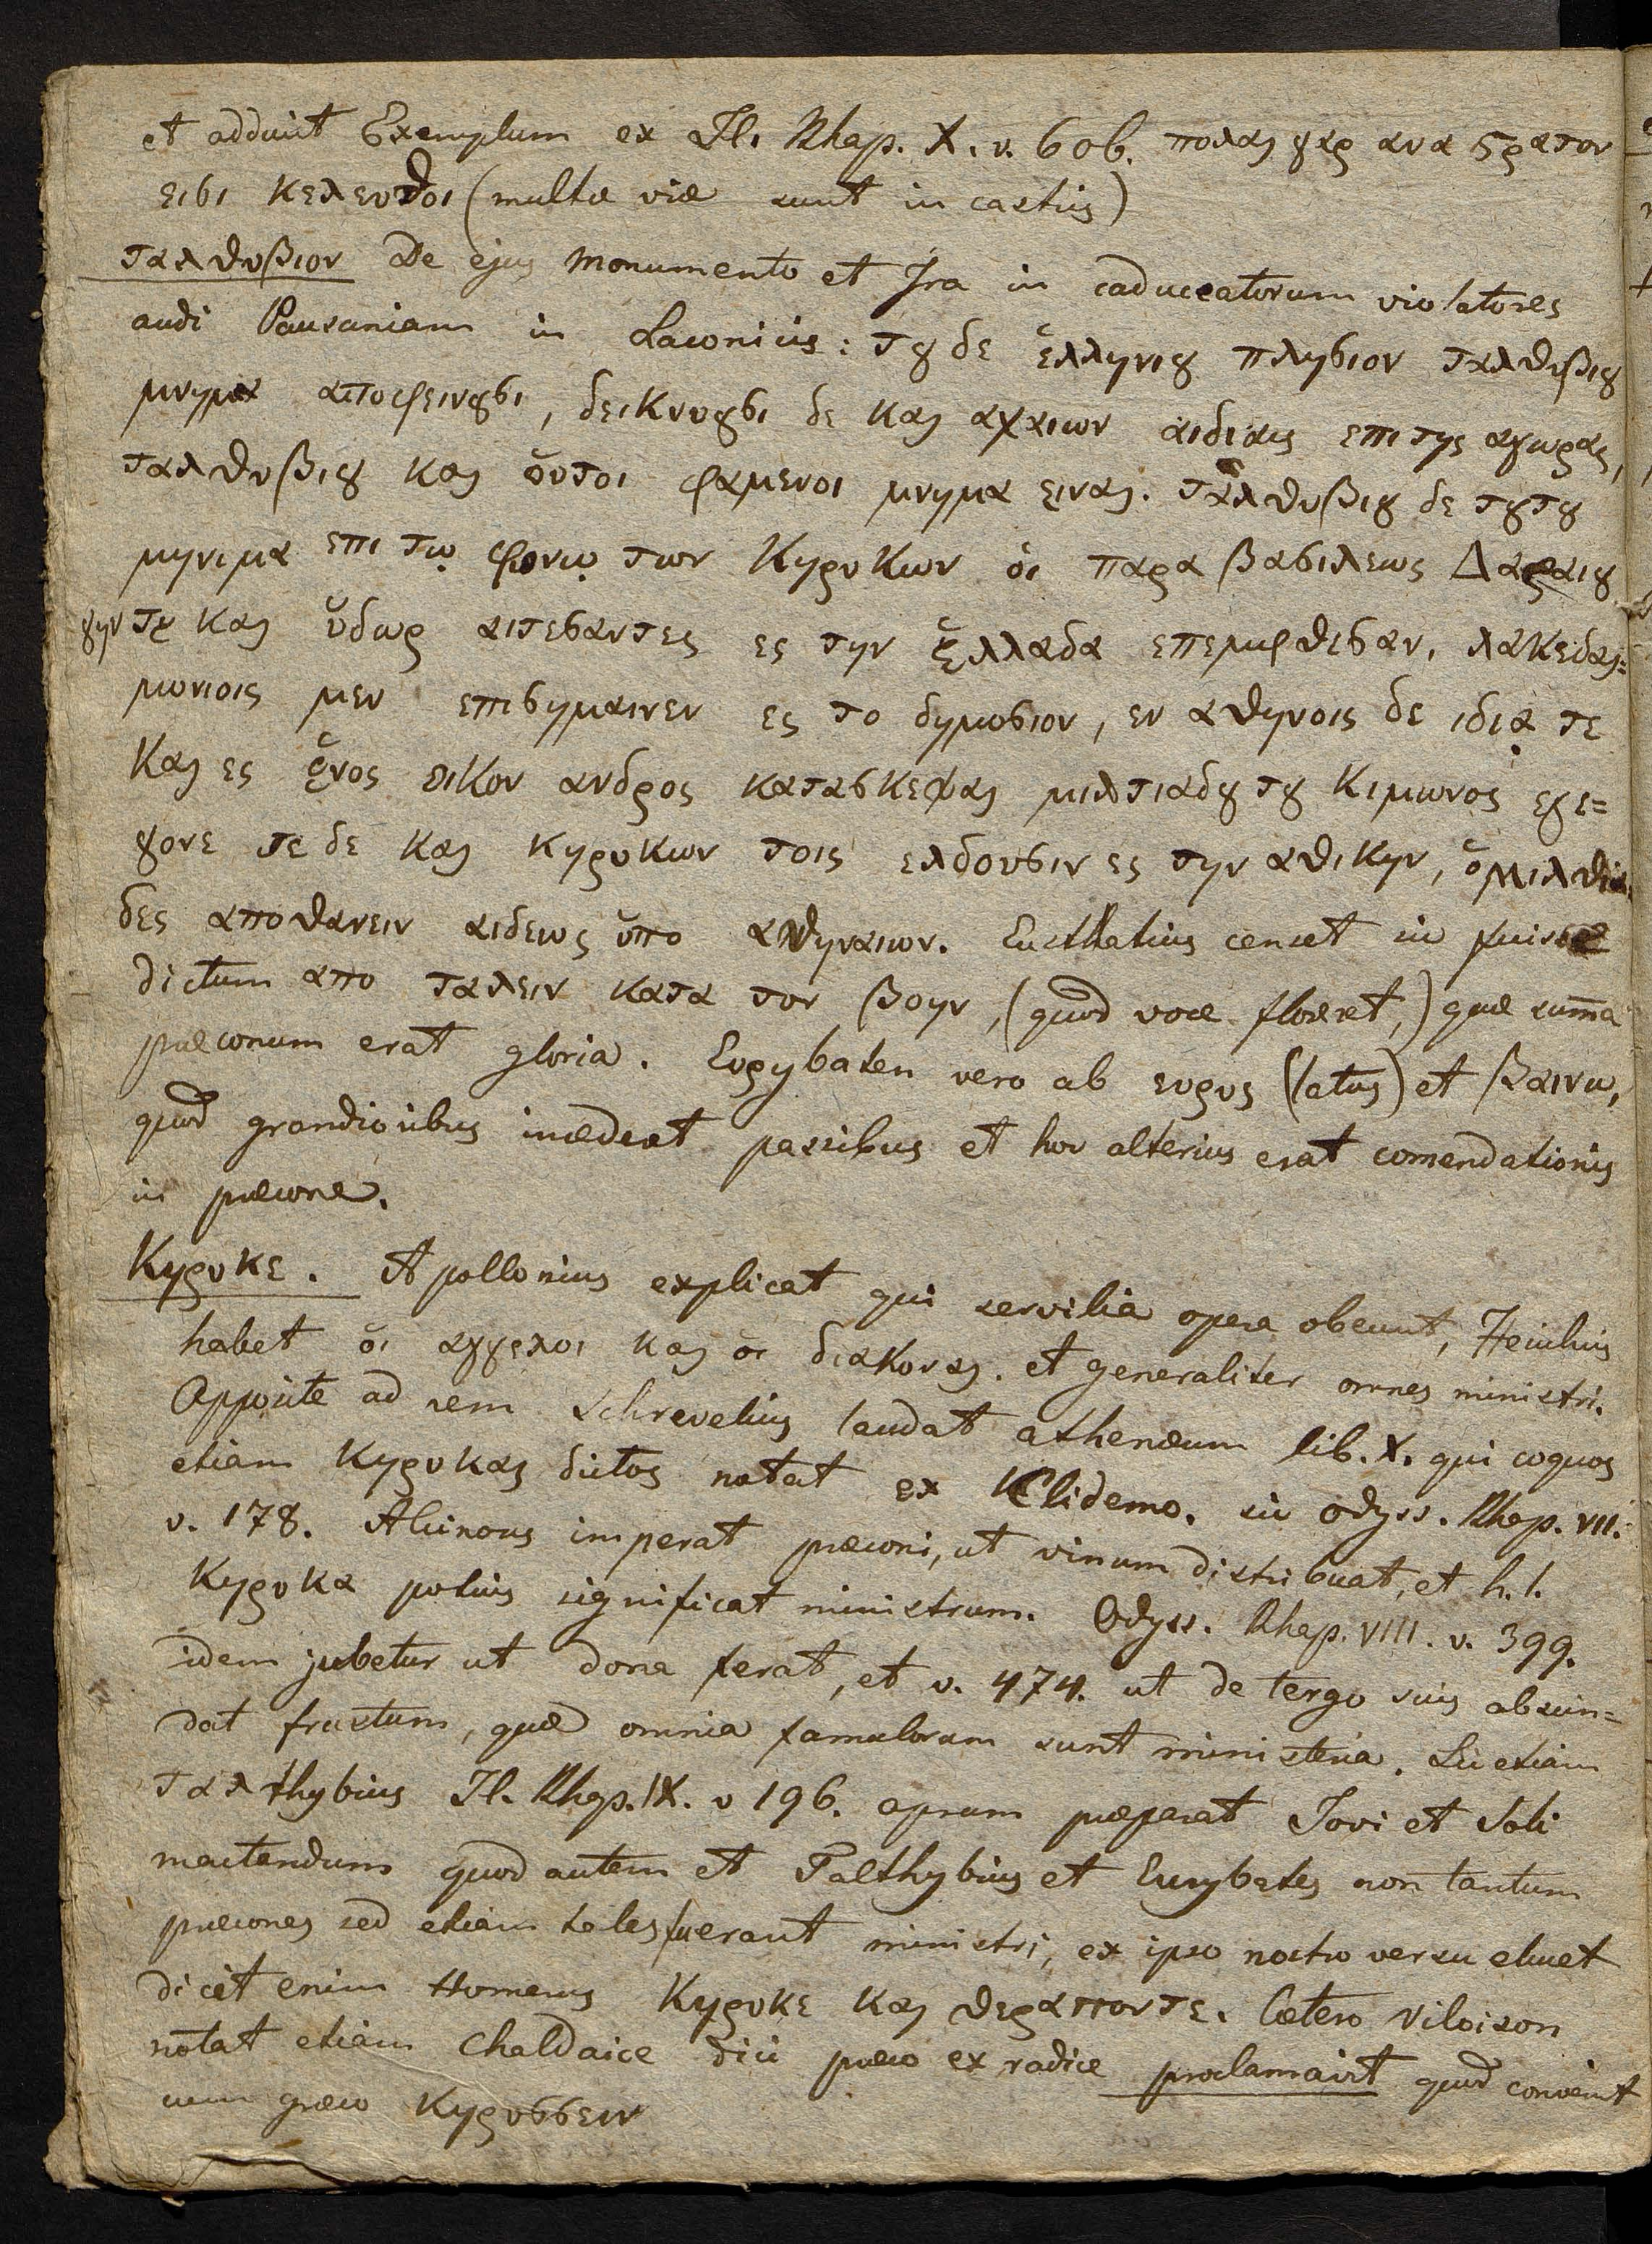 et adducit Exemplum ex Il. Rhap. X. v. 606. πολαι γαρ ανα ϛρατον
εισι κελευθοι (multæ viæ sunt in castris)
ταλθυβιον De ejus monumento et Ira in caduceatorum violatores
audi Pausaniam in Laconicis: τȣ δε ἑλληνιȣ πλησιον ταλθυβιȣ
μνημα αποφεινȣσι, δεικνυȣσι δε και αχαιων αιδιεις επι της αγωρας,
ταλθυβιȣ και ὁυτοι φαμενοι μνημα ειναι. ταλθυβιȣ δε τȣτȣ
μηνιμα επι τῳ φονῳ των Κηρυκων ὁι παρα βασιλεως Δαραιȣ
γην τε και ὑδωρ αιτεσαντες ες την ἑλλαδα επεμφθεσαν, λακεδαι=
μωνιοις μεν επισημαινεν ες το δημοσιον, εν αθηνοις δε ιδιᾳ τε
και ες ἑνος οικον ανδρος κατασκεψαι μιλτιαδȣ τȣ Κιμωνος εγε=
γονε τε δε και κηρυκων τοις ελδουσιν ες την αθικην, ὁ μιλθια
δες αποθανειν αιδεως ὑπο αθηναιων. Eusthatius censet sic fuisse
dictum απο ταλειν κατα τον βοην, (quod voce floreret,) quæ summa
præconum erat gloria. Ευρηbaten vero ab ευρυς (latus) et βαινω,
quod grandioribus incederet passibus et hoc alterius erat comendationis
in præcone.
Κηρυκε. Apollonius explicat qui servilia opera obeunt, Heiichius
habet ὁι αγγελοι και ὁι διακοναι. et generaliter omnes ministri.
Apposite ad rem Schrevelius laudat athenæum lib. X. qui coquos
etiam Κηρυκας dictos notat ex Clidemo. sic odyss. Rhap. VII.
v. 178. Alcinous imperat præconi, ut vinum distribuat, et h. l.
Κηρυκα potius significat ministrum. Odyss. Rhap. VIII. v. 399.
idem jubetur ut dona ferat, et v. 474. ut de tergo suis abscin=
dat frustum, quæ omnia famulorum sunt ministeria. Sic etiam
ταλthybius Il. Rhap. IX. v 196. aprum præparat Jovi et Soli
mactandum quod autem et Talthybius et Eurybates non tantum
præcones sed etiam tales fuerant ministri, ex ipso nostro versu eluet
dicit enim Homerus Κηρυκε και θεραποντε. Cætero Viloison
notat etiam Chaldaice dici præco ex radice proclamavit quod convenit
cum græco Κηρυσσειν